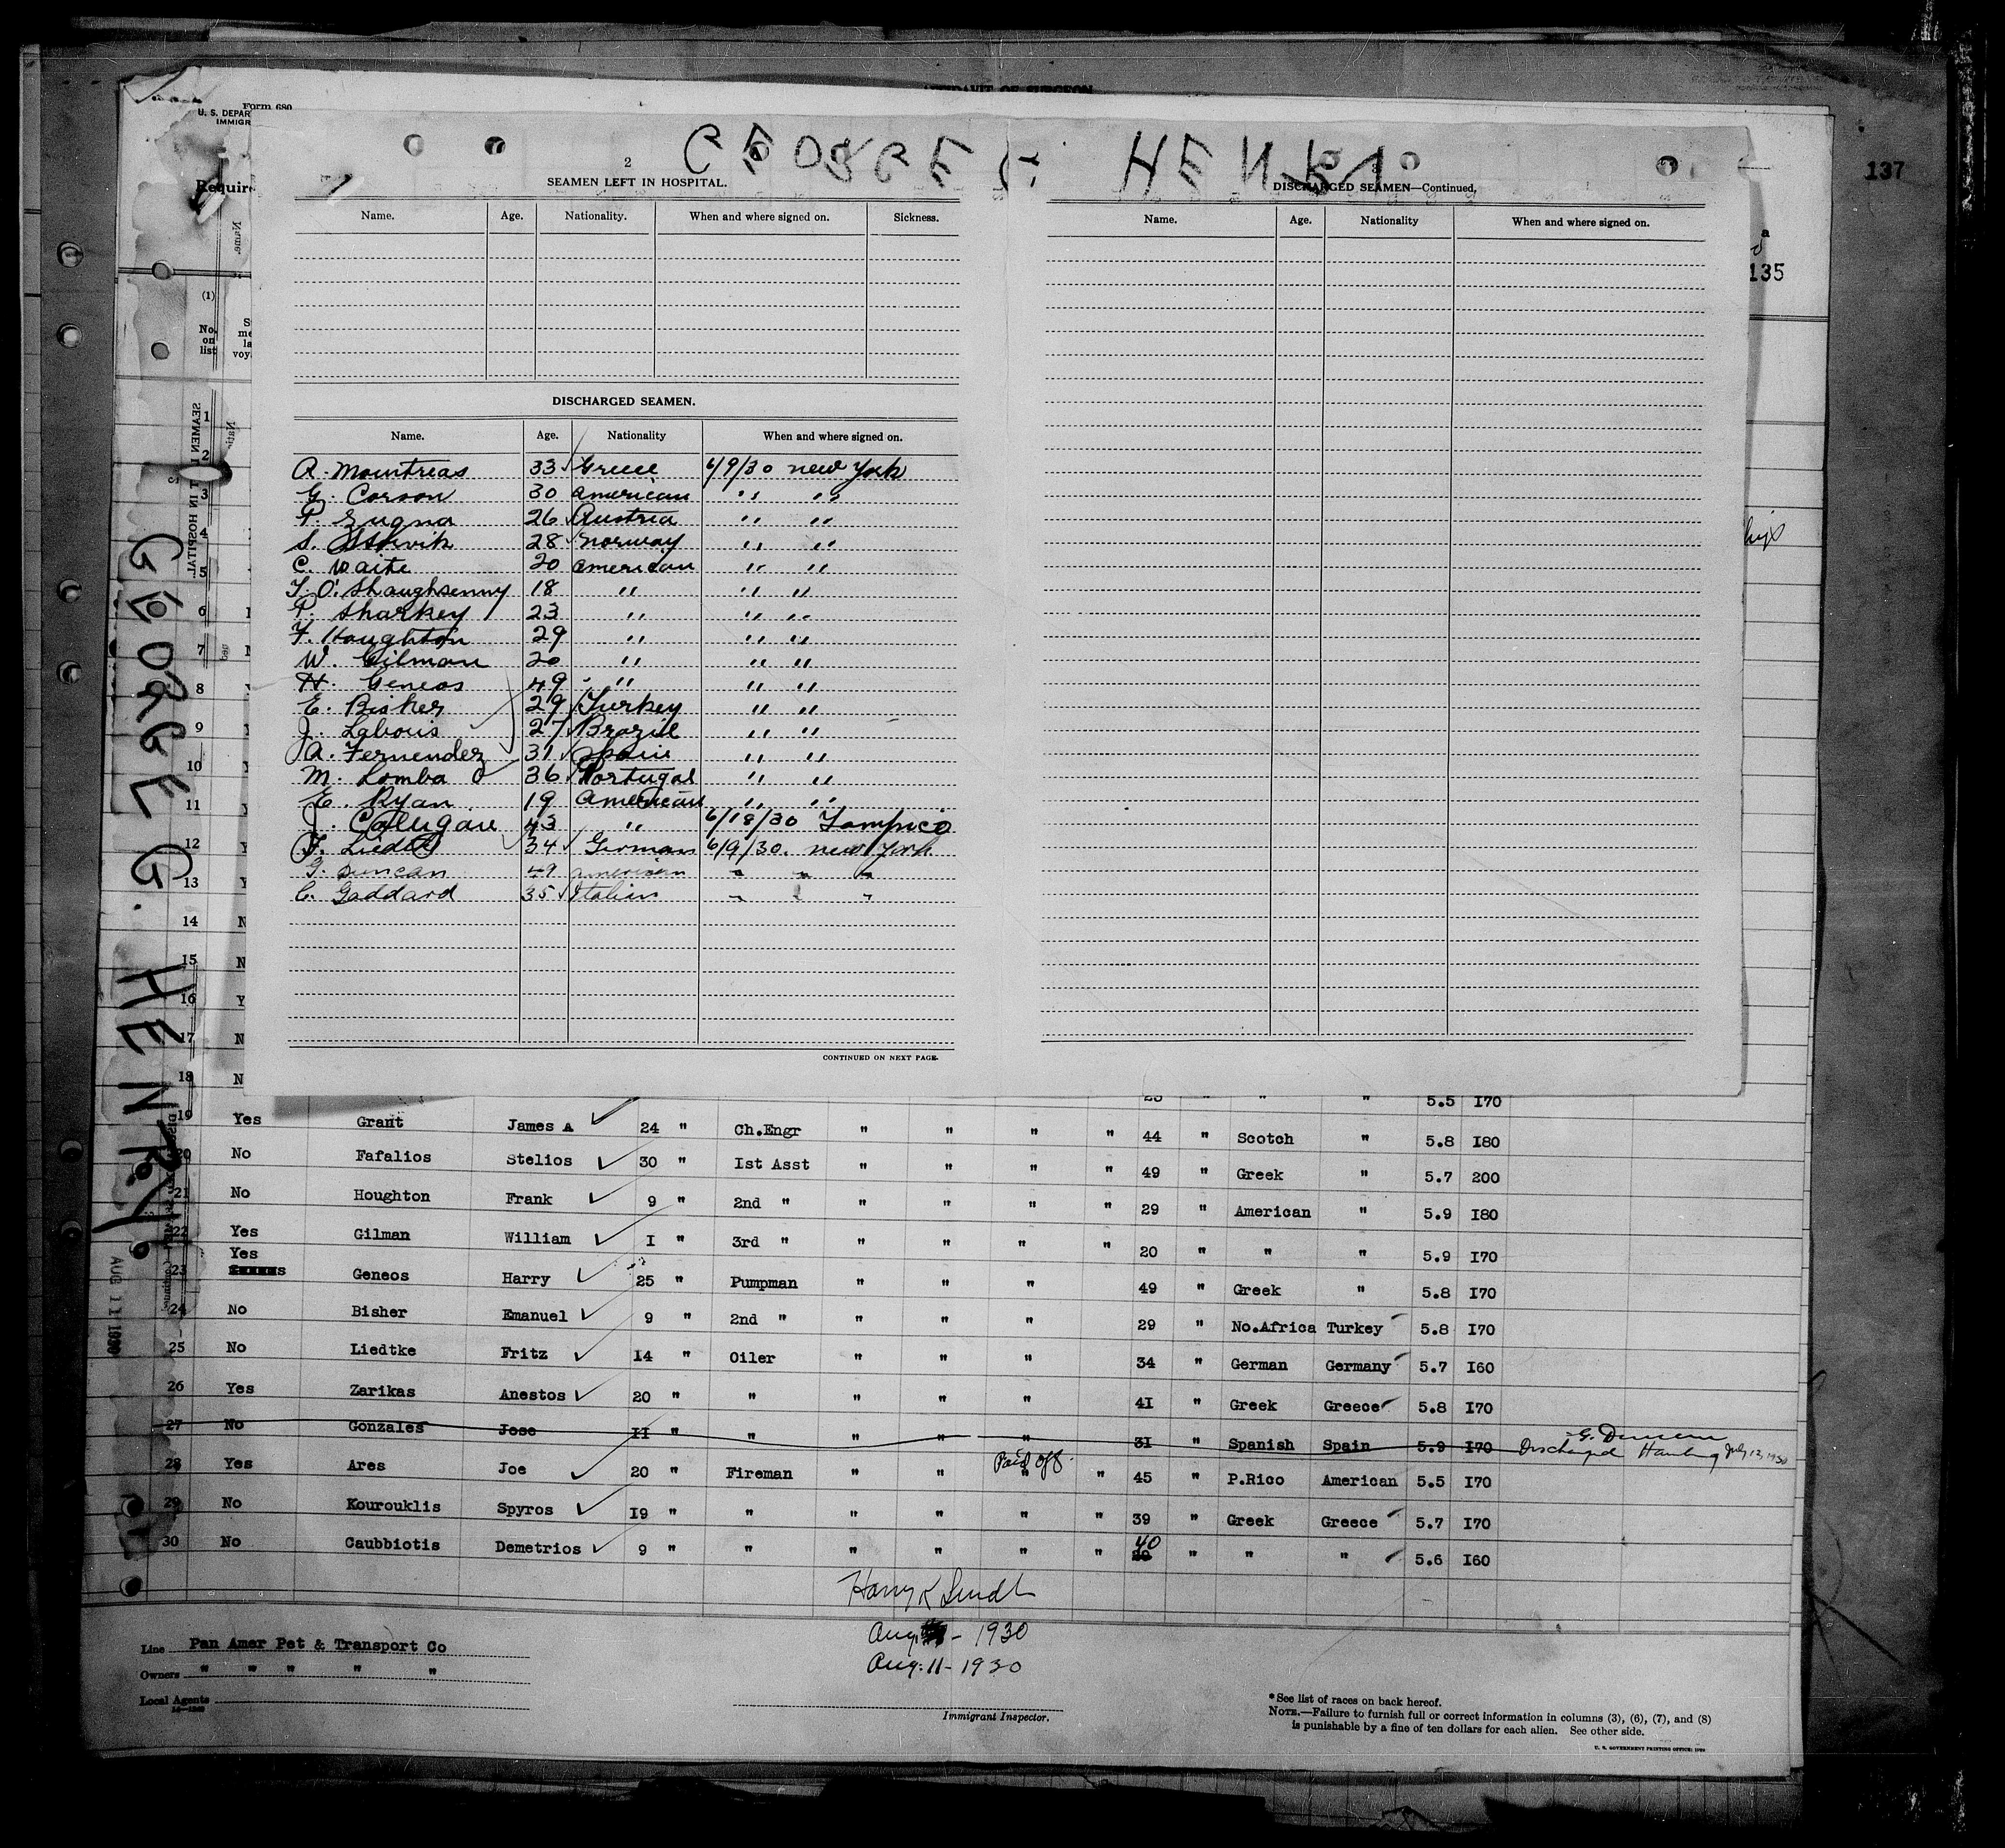 AFFIDAVIT OF SURGEON
Form 680
U. S. DEPAR
IMMIGR
Require
137
135
GEORGE G. HENRY
2
SEAMEN LEFT IN HOSPITAL.
Name. Age. Nationality. When and where signed on. Sickness.
DISCHARGED SEAMEN.
Name. Age. Nationality When and where signed on.
A. Mountreas 33 Greece 6/9/30 new York
G. Corson 30 American " "
P. Zugna 26 Austria " "
S. 28 Norway " "
C. Waite 20 American " "
T. O'Shaughsenny 18 " " "
P. Sharkey 23 " " "
F. Houghton 29 " " "
W. Gilman 20 " " "
H. Geneos 49 " " "
E. Bisher 29 Turkey " "
J. Labouis 27 Brazil " "
A. Fernendez 31 Spain " "
M. Lomba 36 Portugal " "
E. Ryan 19 American " "
J. 43 " 6/18/30 Tampico
F. Liedtk 34 German 6/9/30. new York
G. Duncan 49 american " " "
C. Goddard 35 Italian " "
CONTINUED ON NEXT PAGE.
DISCHARGED SEAMEN—Continued,
Name. Age. Nationality When and where signed on.
(1)
No. on list
1
2
3
4
5
6
7
8
9
10
11
12
13
14 N
15 N
16 Y
17 N
18 N
" " 5.5 I70
19 Yes Grant James A 24 " Ch.Engr " " " " 44 " Scotch " 5.8 I80
20 No Fafalios Stelios 30 " Ist Asst " " " " 49 " Greek " 5.7 200
21 No Houghton Frank 9 " 2nd " " " " " 29 " American " 5.9 I80
22 Yes Gilman William I " 3rd " " " " " 20 " " " 5.9 I70
Yes
23 Geneos Harry 25 " Pumpman " " " 49 " Greek " 5.8 I70
24 No Bisher Emanuel 9 " 2nd " " " " 29 " No.Africa Turkey 5.8 I70
25 No Liedtke Fritz I4 " Oiler " " " 34 " German Germany 5.7 I60
26 Yes Zarikas Anestos 20 " " " " " 4I " Greek Greece 5.8 I70
27 No Gonzales Jose II " " " " " 3I " Spanish Spain 5.9 I70 Discharged Hamburg July 12, 1930
G. Duncan
28 Yes Ares Joe 20 " Fireman " " " " 45 " P.Rico American 5.5 I70
Paid off.
29 No Kourouklis Spyros I9 " " " " " " 39 " Greek Greece 5.7 I70
30 No Caubbiotis Demetrios 9 " " " " " " 40 " " " 5.6 I60
AUG 11 1930
Aug. - 1930
Aug. 11 - 1930
Line Pan Amer Pet & Transport Co
Owners " " " " "
Local Agents
Immigrant Inspector.
*See list of races on back hereof.
NOTE.—Failure to furnish full or correct information in columns (3), (6), (7), and (8)
is punishable by a fine of ten dollars for each alien. See other side.
U. S. GOVERNMENT PRINTING OFFICE:
GEORGE G. HENRY.